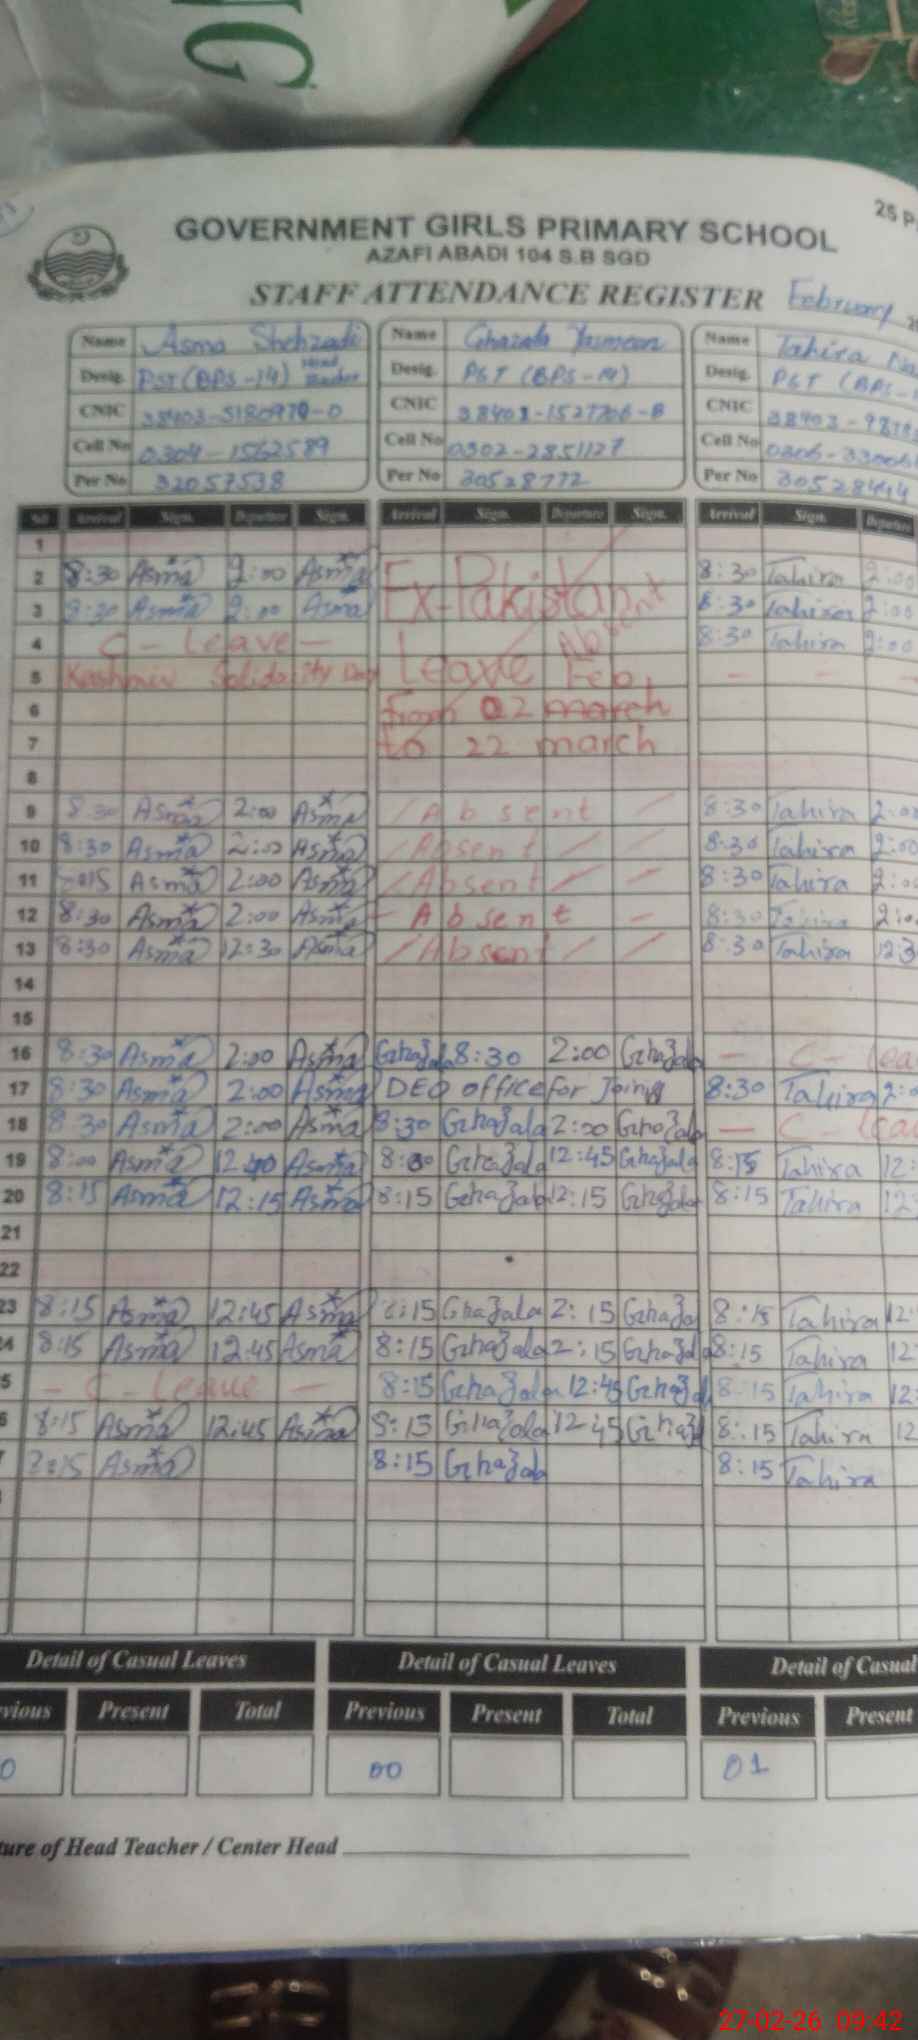 GOVERNMENT GIRLS PRIMARY SCHOOL
AZAFI ABADI 104 S.B SGD
STAFF ATTENDANCE REGISTER February
Name Asma Shehzadi Name Ghazala Yasmeen Name Tahira
Desig. PST (BPS-14) Head Teacher Desig. PST (BPS-14) Desig. PST (BPS-
CNIC 38403- CNIC 38403- CNIC 38403-
Cell No 0304-1562589 Cell No 0302-2851127 Cell No 0306-
Per No 32057538 Per No 30528772 Per No 30528494
Arrival Sign. Departure Sign. Arrival Sign. Departure Sign. Arrival Sign. Departure
1
2 8:30 Asma 2:00 Asma Ex-Pakistan 8:30 Tahira 2:00
3 8:30 Asma 2:00 Asma Absent 8:30 Tahira 2:00
4 C - Leave - 8:30 Tahira 2:00
5 Kashmir Solidarity Day Leave Feb, - - -
6 from 02 march
7 to 22 march
8
9 8:30 Asma 2:00 Asma / Absent / 8:30 Tahira 2:00
10 8:30 Asma 2:00 Asma / Absent / / 8:30 Tahira 2:00
11 Asma 2:00 Asma / Absent / / 8:30 Tahira 2:00
12 8:30 Asma 2:00 Asma - Absent - 8:30 Tahira 2:0
13 8:30 Asma 12:30 Asma / Absent / / 8:30 Tahira 12:3
14
15
16 8:30 Asma 2:00 Asma Ghazala 8:30 2:00 Ghazala - C - Lea
17 8:30 Asma 2:00 Asma DEO office for Joining 8:30 Tahira 2:0
18 8:30 Asma 2:00 Asma 8:30 Ghazala 2:00 Ghazala - C - Lea
19 8:00 Asma 12:40 Asma 8:00 Ghazala 12:45 Ghazala 8:15 Tahira 12:
20 8:15 Asma 12:15 Asma 8:15 Ghazala 12:15 Ghazala 8:15 Tahira 12:
21
22
23 8:15 Asma 12:45 Asma 8:15 Ghazala 2:15 Ghazala 8:15 Tahira 12
4 8:15 Asma 12:45 Asma 8:15 Ghazala 2:15 Ghazala 8:15 Tahira 12
5 - C - Leave - 8:15 Ghazala 12:45 Ghazala 8:15 Tahira 12
6 8:15 Asma 12:45 Asma 8:15 Ghazala 12:45 Ghazala 8:15 Tahira 12
Asma 8:15 Ghazala 8:15 Tahira
Detail of Casual Leaves Detail of Casual Leaves Detail of Casual
vious Present Total Previous Present Total Previous Present
0 00 01
ture of Head Teacher / Center Head
27-02-26 09:42